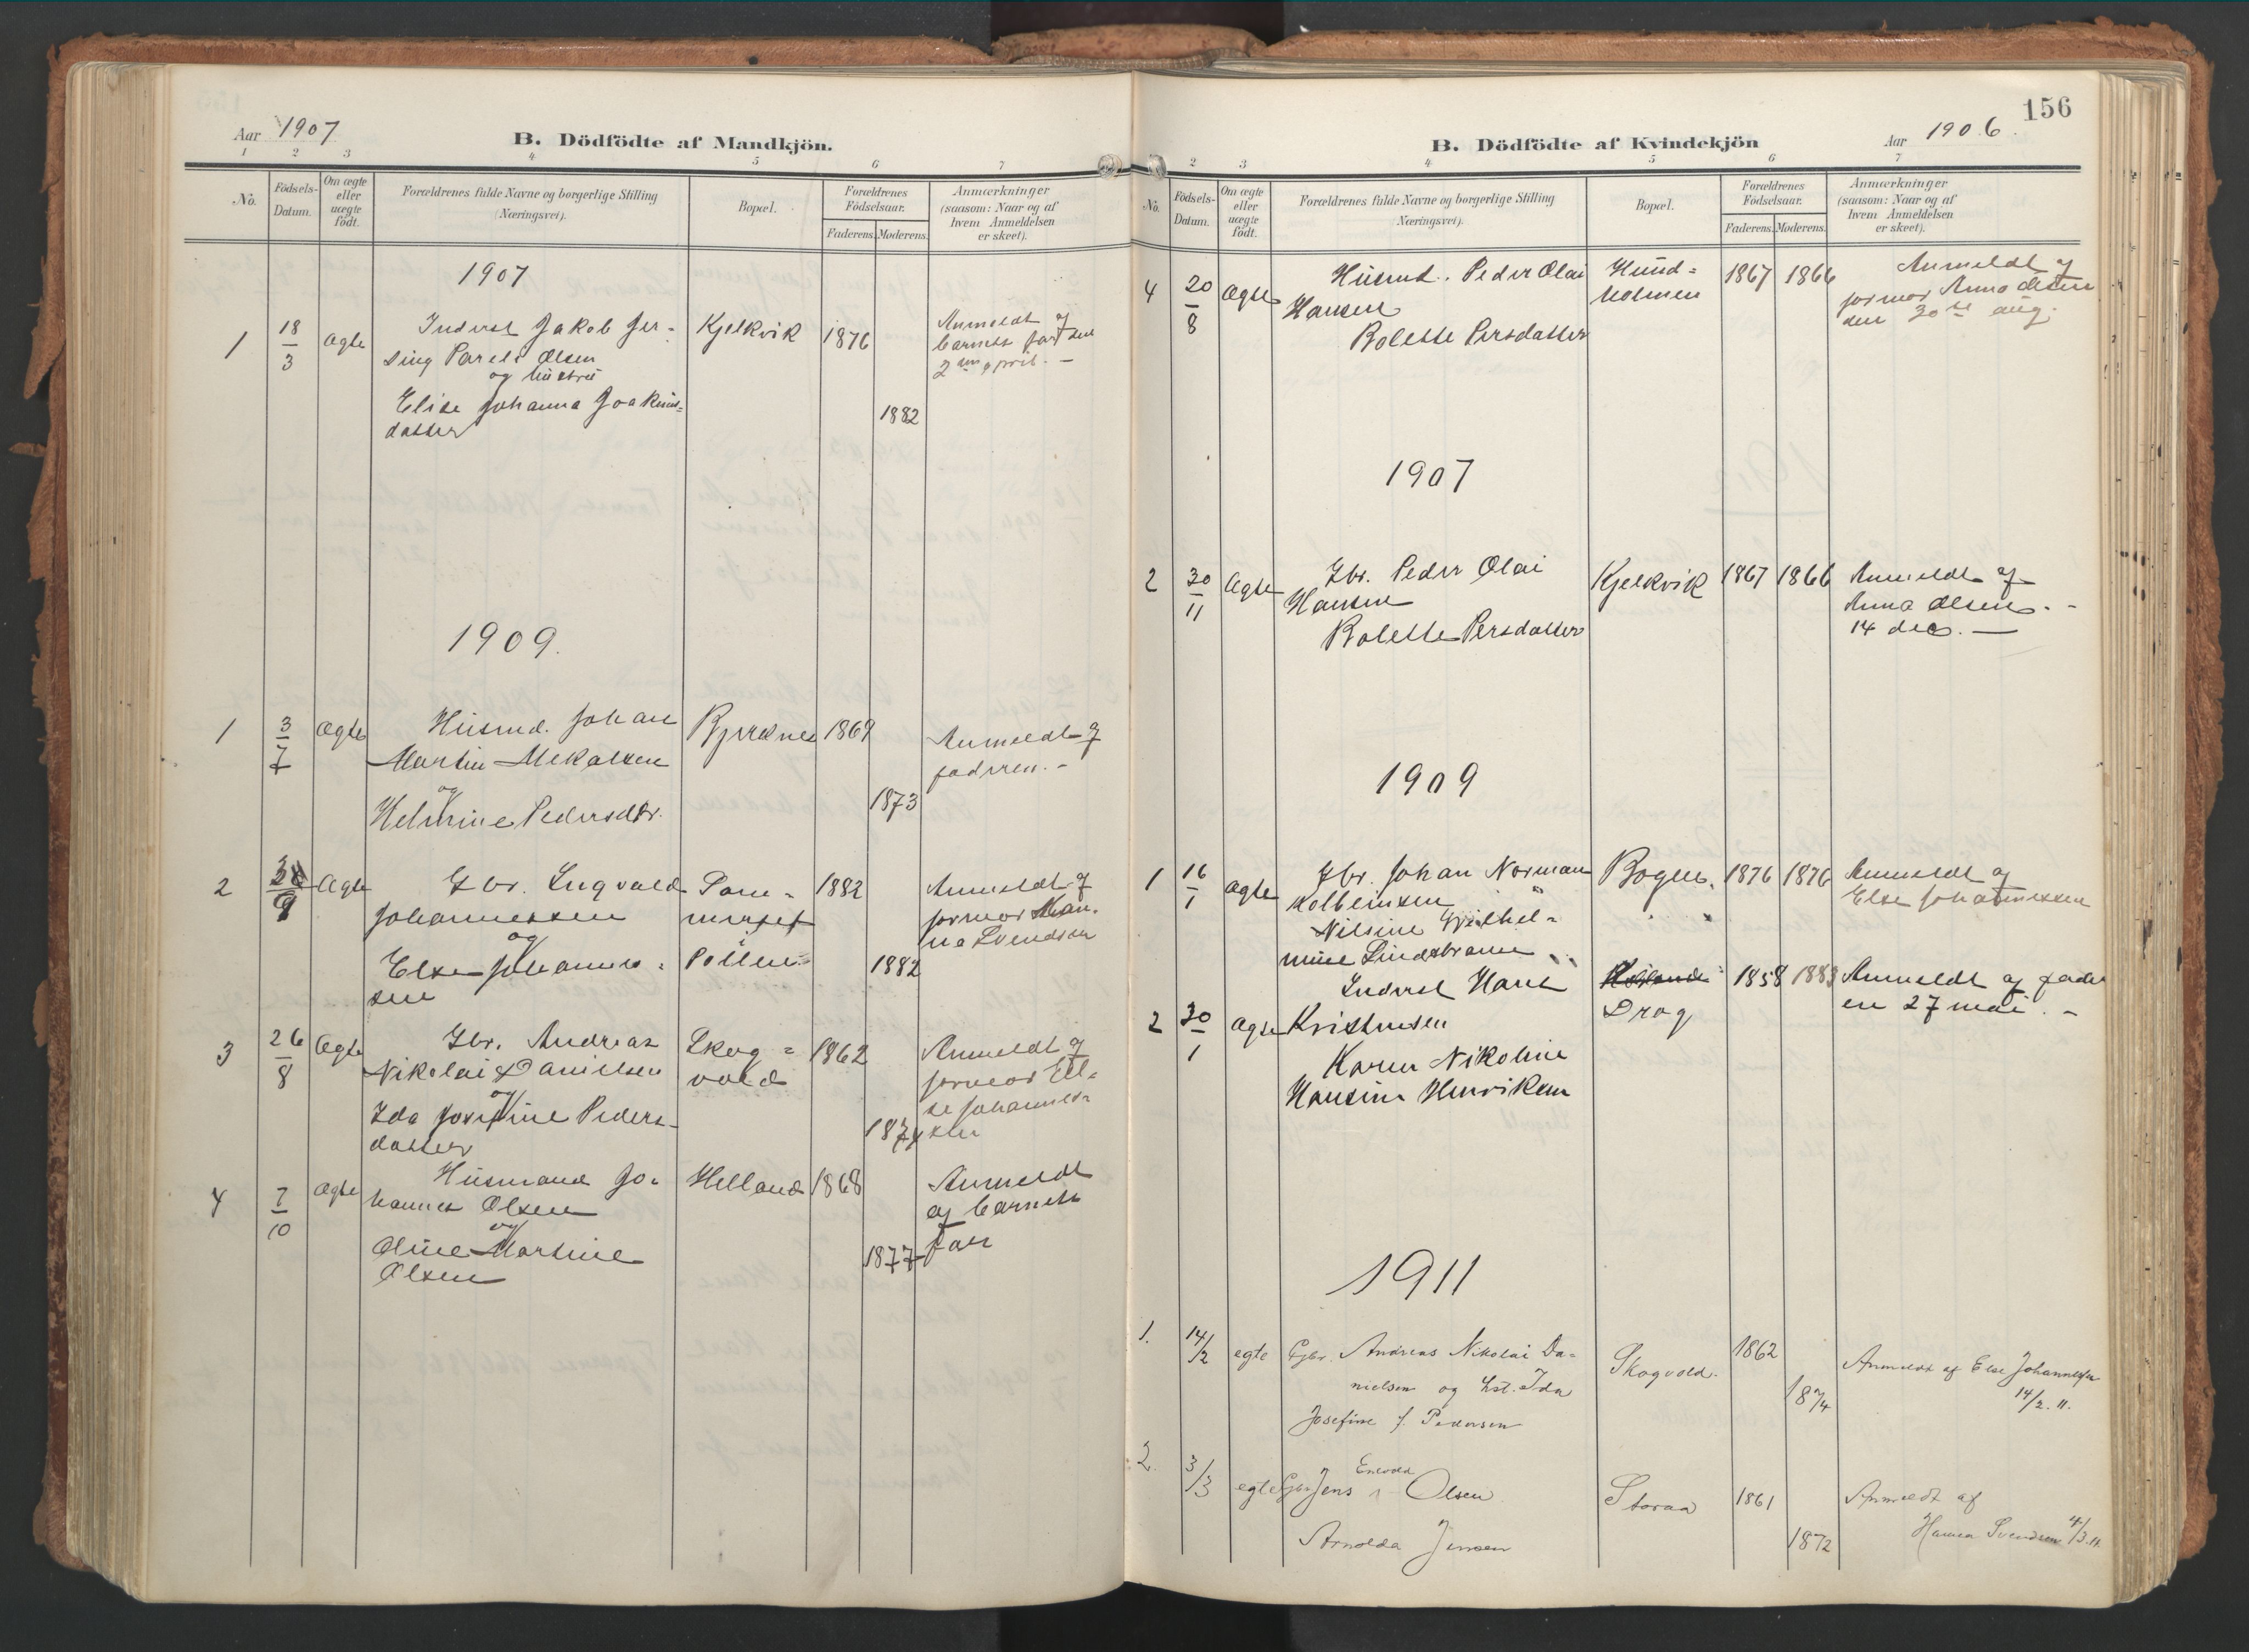 Aar 1907
B. Dödfödte af Mandkjön.
1 2 3 4 5 6 7
No.
Födsels-
Datum.
Om ægte
eller
uægte
födt.
Forældrenes fulde Navne og borgerlige Stilling
(Næringsvei).
Bopæl.
Forældrenes
Födselsaar.
Faderens. Moderens.
Anmærkninger
(saasom: Naar og af
hvem Anmeldelsen
er skeet).
1907
1 18/3 Ægte Inderst Jakob Jer-
sing Parelr Olsen
og hustru
Elise Johanna Joakims-
datter
Kjelkvik 1876
1882
Anmeldt af
barnets far den
2den april. —
1909.
1 3/7 Ægte Husmd. Johan
Martin Mekalsen
og
Helmine Pedersdtr.
1869
1873
Anmeldt af
faderen. -
2 9 Ægte Gbr. Ingvald
Johannessen
og
Else Johannes-
sen
Pom-
Pollen
1882
1882
Anmeldt af
jormor Han-
na Svendsen
3 26/8 Ægte Gbr. Andreas
Nikolai Danielsen
og
Ida Josefine Peders-
datter
Skog-
vold
1862
1874
Anmeldt af
jormor El-
se Johannes-
sen
4 7/10 Ægte Husmand Jo-
hannes Olsen
og
Oline Martine
Olsen
Helland 1868
1877
Anmeldt
af barnets
far
156
B. Dödfödte af Kvindekjön
Aar 1906.
2 3 4 5 6 7
No.
Födsels-
Datum.
Om ægte
eller
uægte
födt.
Forældrenes fulde Navne og borgerlige Stilling
(Næringsvei).
Bopæl.
Forældrenes
Födselsaar.
Faderens. Moderens.
Anmærkninger
(saasom: Naar og af
hvem Anmeldelsen
er skeet).
4 20/8 Ægte Husmd. Peder Olai
Hansen
Bolette Persdatter
Hund-
holmen
1867 1866
Anmeldt af
jormor Anna Olsen
den 30te aug.
1907
2 30/11 Ægte Gbr. Peder Olai
Hansen
Bolette Persdatter
Kjelkvik 1867 1866
Anmeldt af
Anna Olsen. -
14 dec. —
1909
1 16/1 Ægte Gbr. Johan Norman
Kolbeinsen
Nilsine Wilhel-
mine Lindstrøm
Bogen. 1876 1876
Anmeldt af
Else Johannessen
2 30/1 Ægte Inderst Hans
Kristensen
Karen Nikoline
Hansine Henriksen
Drag
1858 1883
Anmeldt af fader
en 27 mai. -
1911
1. 14/2 egte Gbr. Andreas Nikolai Da-
nielsen og hst. Ida
Josefine f. Pedersen
Skogvold.
1862
1874
Anmeldt af Else Johannessen
14/2. 11.
2. 3/3 egte Gbr Jens Olsen
Arnolda Jensen
Storaa 1861
1872
Anmeldt af
Hanna Svendsen 4/3. 11.